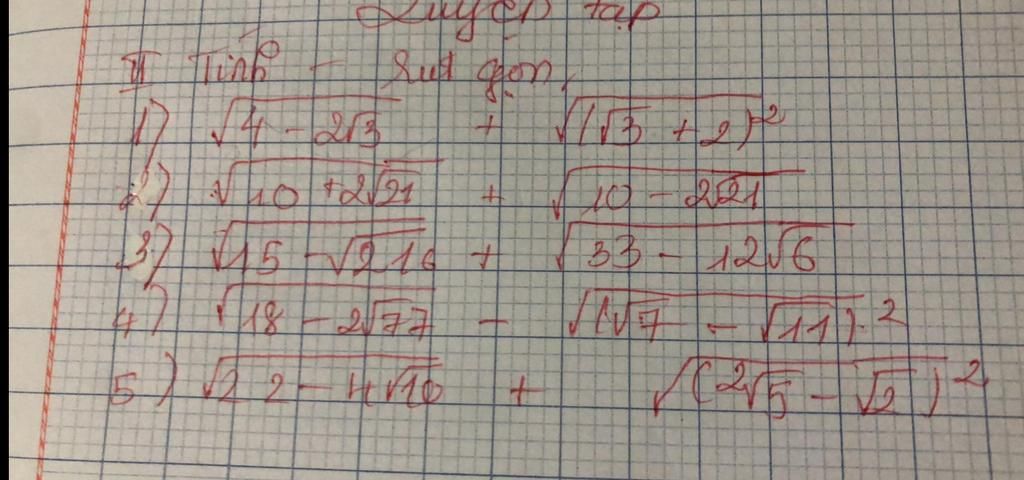 Luyện tập
II Tính – Rút gọn
1) √(4 – 2√3) + √((√3 + 2)²)
2) √(10 + 2√21) + √(10 – 2√21)
3) √(15 – √216) + √(33 – 12√6)
4) √(18 – 2√77) – √((√7 – √11)²)
5) √(22 – 4√10) + √((2√5 – √2)²)